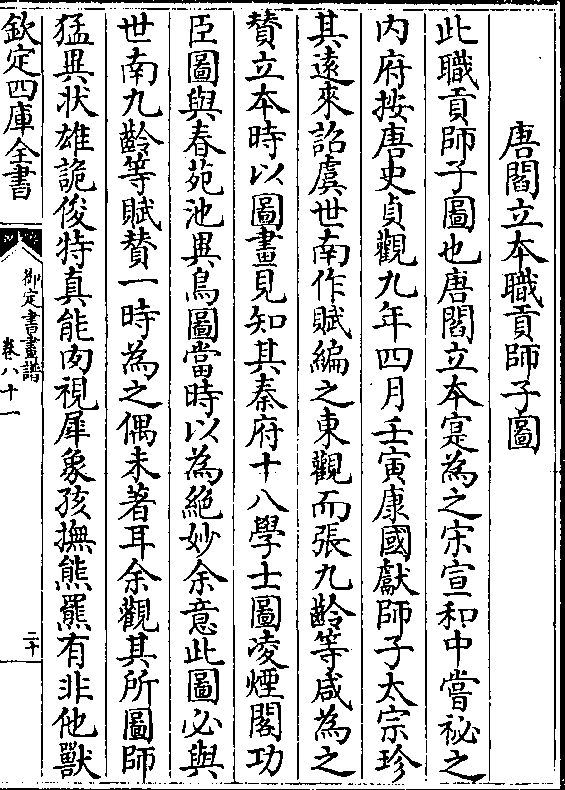 唐閻立本職貢師子圖
此職貢師子圖也唐閻立本寔為之宋宣和中嘗秘之
内府按唐史貞觀九年四月壬寅康國獻師子太宗珍
其遠來詔虞世南作賦編之東觀而張九齡等咸為之
賛立本時以圖畫見知其秦府十八學士圖凌煙閣功
臣圖與春苑池異鳥圖當時以為絶妙余意此圖必與
世南九齡等賦賛一時為之偶未著耳余觀其所圖師
猛異狀雄詭俊特真能肉視犀象孩撫熊羆有非他獸
欽定四庫全書
御定書畫譜
卷八十一
二十